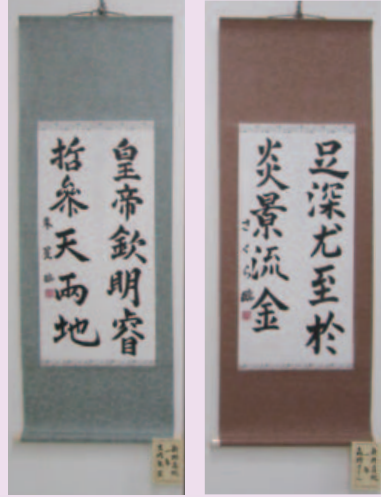 皇帝欽明睿
哲參天兩地
足深尤至於
炎景流金
さくら臨